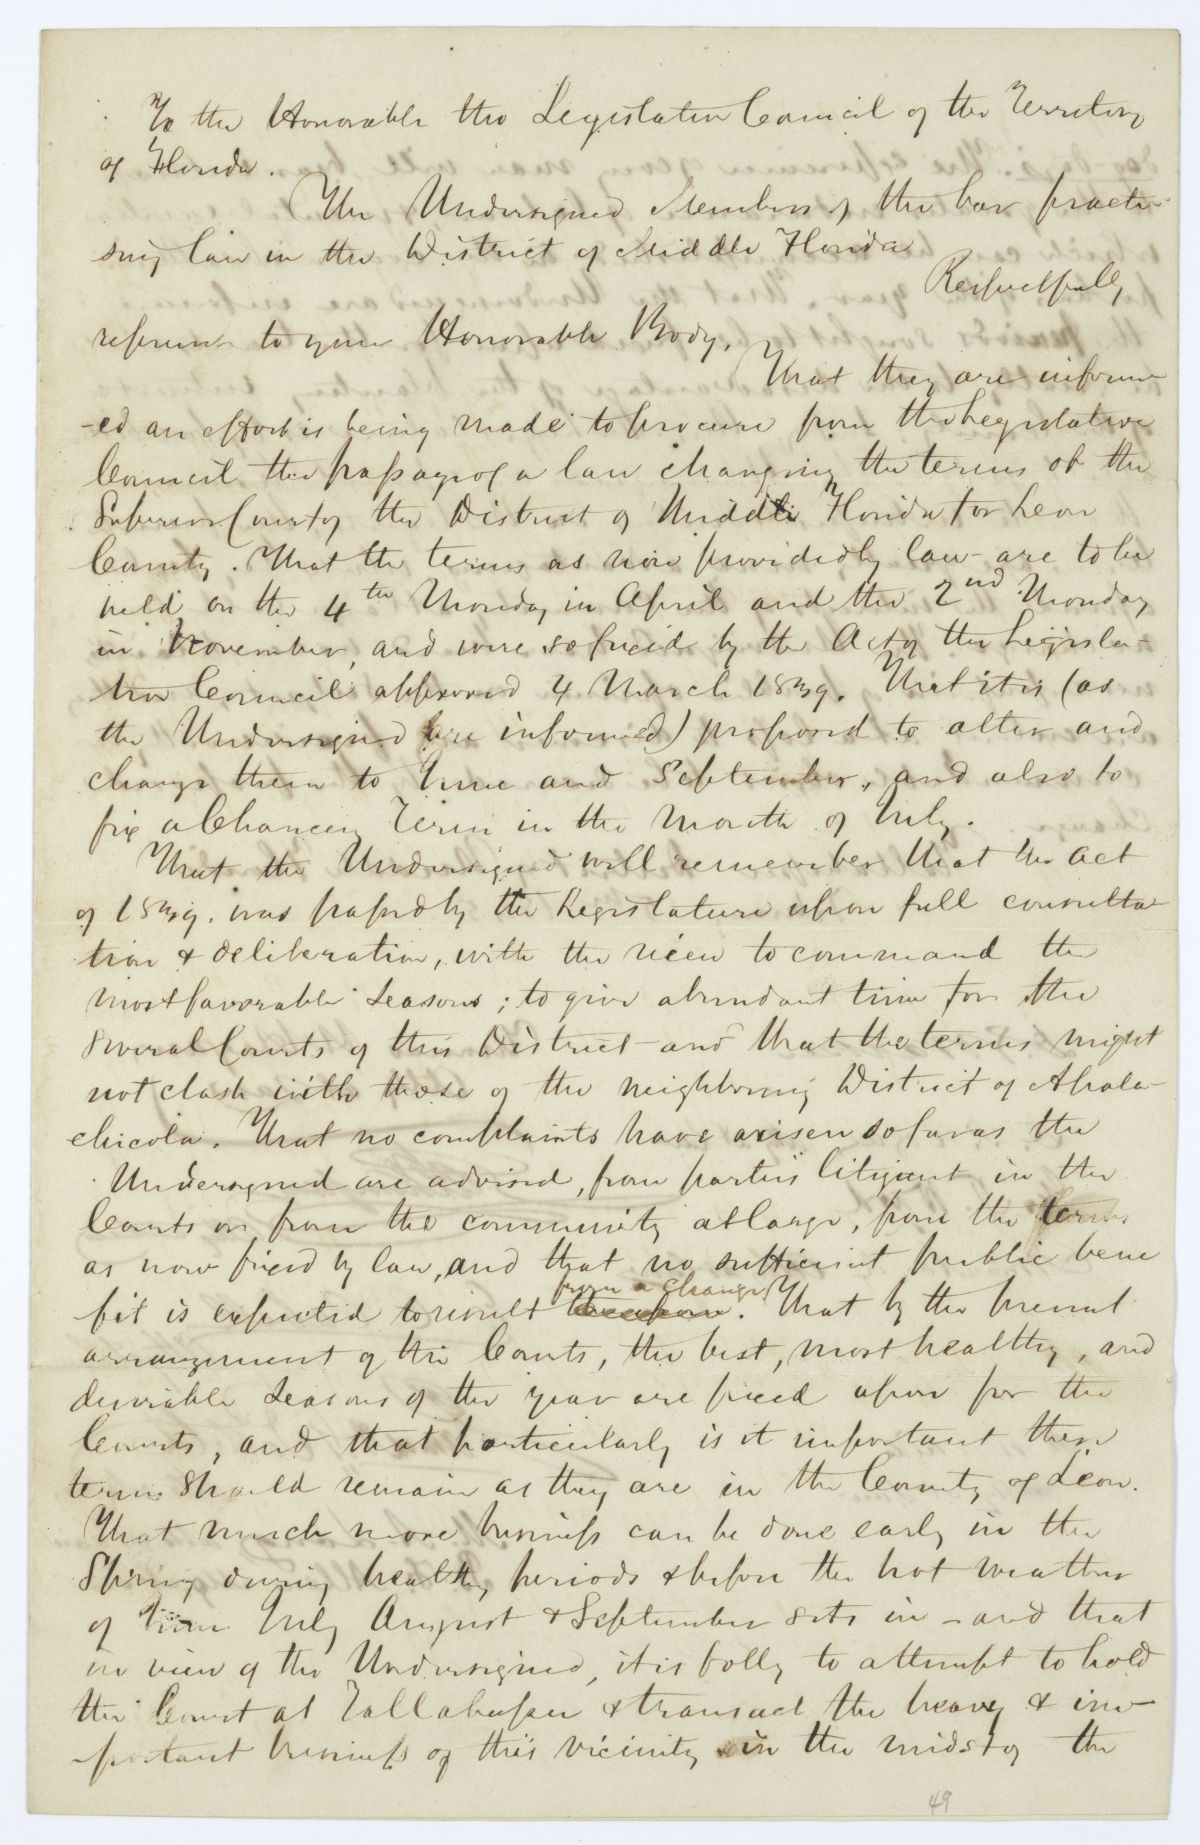 To the Honorable the Legislative Council of the Territory
of Florida.
The Undersigned Members of the bar practi-
sing law in the District of Middle Florida
Respectfully
represent to your Honorable Body,
That they are inform
-ed an effort is being made to procure from the Legislative
Council the passage of a law changing the terms of the
Superior Court of the District of Middle Florida for Leon
County. That the terms as now provided by law are to be
held on the 4th Monday in April and the 2nd Monday
in November, and were so fixed by the Act of the Legisla-
tive Council approved 4 March 1839. That it is (as
the Undersigned are informed) proposed to alter and
change them to June and September, and also to
fix a Chancery Term in the Month of July.
That the Undersigned will remember that the act
of 1839. was passed by the Legislature upon full consulta-
tion & deliberation, with the view to command the
most favorable seasons; to give abundant time for the
Several Courts of this District and that the terms might
not clash with those of the neighboring District of Apala-
chicola. That no complaints have arisen so far as the
Undersigned are advised, from parties litigant in the
Courts or from the community at large, from the terms
as now fixed by law, and that no sufficient public bene
fit is expected to result from a change. That by the present
arrangement of the Courts, the best, most healthy, and
desirable seasons of the year are fixed upon for the
Courts, and that particularly is it important these
terms should remain as they are in the County of Leon.
That much more business can be done early in the
Spring during healthy periods & before the hot weather
of June July August & September sets in – and that
in view of the Undersigned, it is folly to attempt to hold
the Court at Tallahassee & transact the heavy & im-
-portant business of this vicinity in the midst of the
49